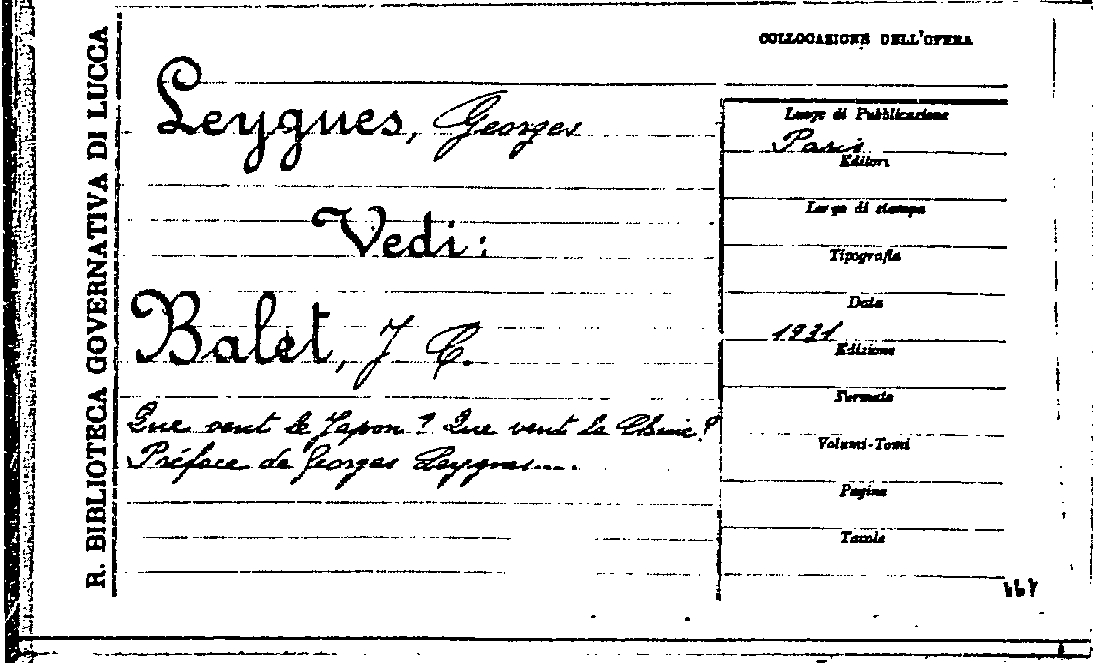 R. BIBLIOTECA GOVERNATIVA DI LUCCA
COLLOCAZIONE DELL'OPERA
Leygues, Georges
Vedi:
Balet, J C.
Que veut le Japon? Que veut la Chine?
Préface de Georges Leygues....
Luogo di Pubblicazione
Paris
Editori
Luogo di stampa
Tipografia
Data
1931
Edizione
Formato
Volumi-Tomi
Pagine
Tavole